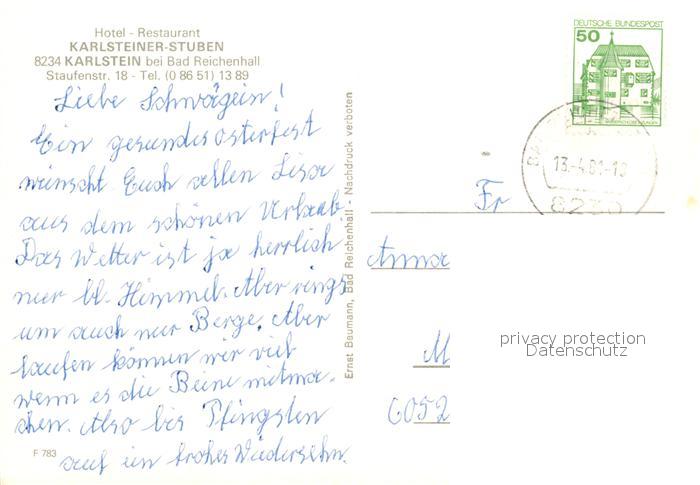 Hotel - Restaurant
KARLSTEINER-STUBEN
8234 KARLSTEIN bei Bad Reichenhall
Staufenstr. 18 - Tel. (0 86 51) 13 89
Liebe Schwägein!
Ein gesundes Osterfest
wünscht Euch allen Lisa
aus dem schönen Urlaub.
Das Wetter ist ja herrlich
nur bl. Himmel. Aber rings
um auch nur Berge. Aber
laufen können wir viel
wenn es die Beine mitma-
chen. Also bis Pfingsten
auf ein frohes Wiedersehn.
F 783
Ernst Baumann, Bad Reichenhall - Nachdruck verboten
DEUTSCHE BUNDESPOST
50
13.-4.81-18
8230
Fr
Anna
M
6052
privacy protection
Datenschutz